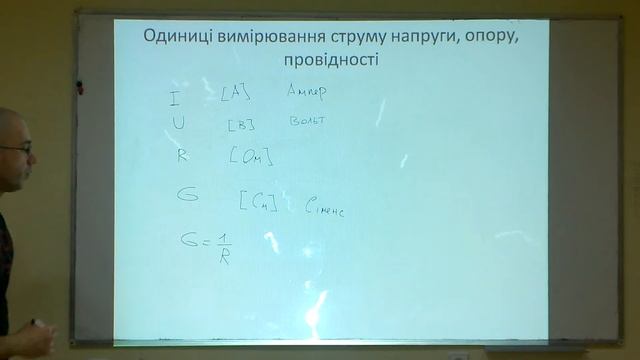 Одиниці вимірювання струму напруги, опору,
провідності
I [А] Ампер
U [В] Вольт
R [Ом]
G [См] Сіменс
G = 1/R